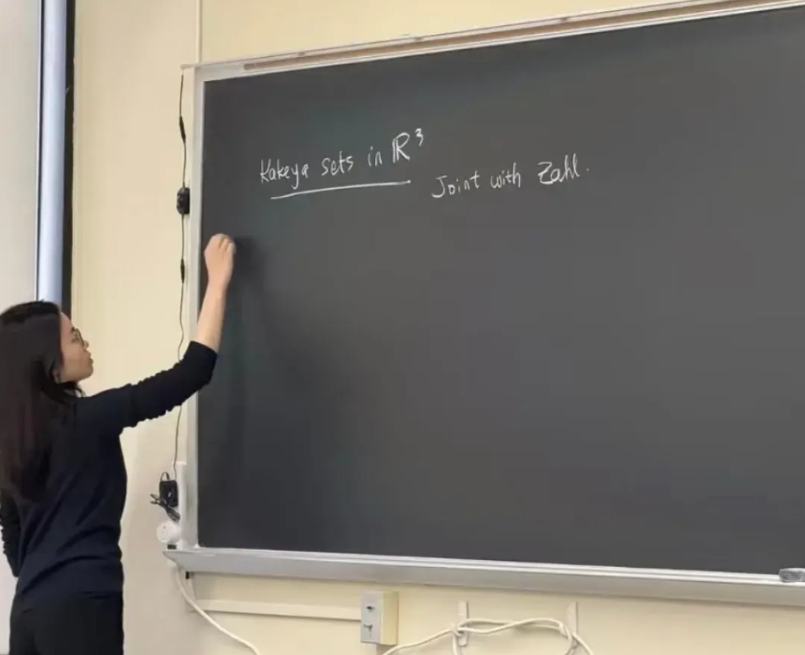 Kakeya sets in ℝ³
Joint with Zahl.